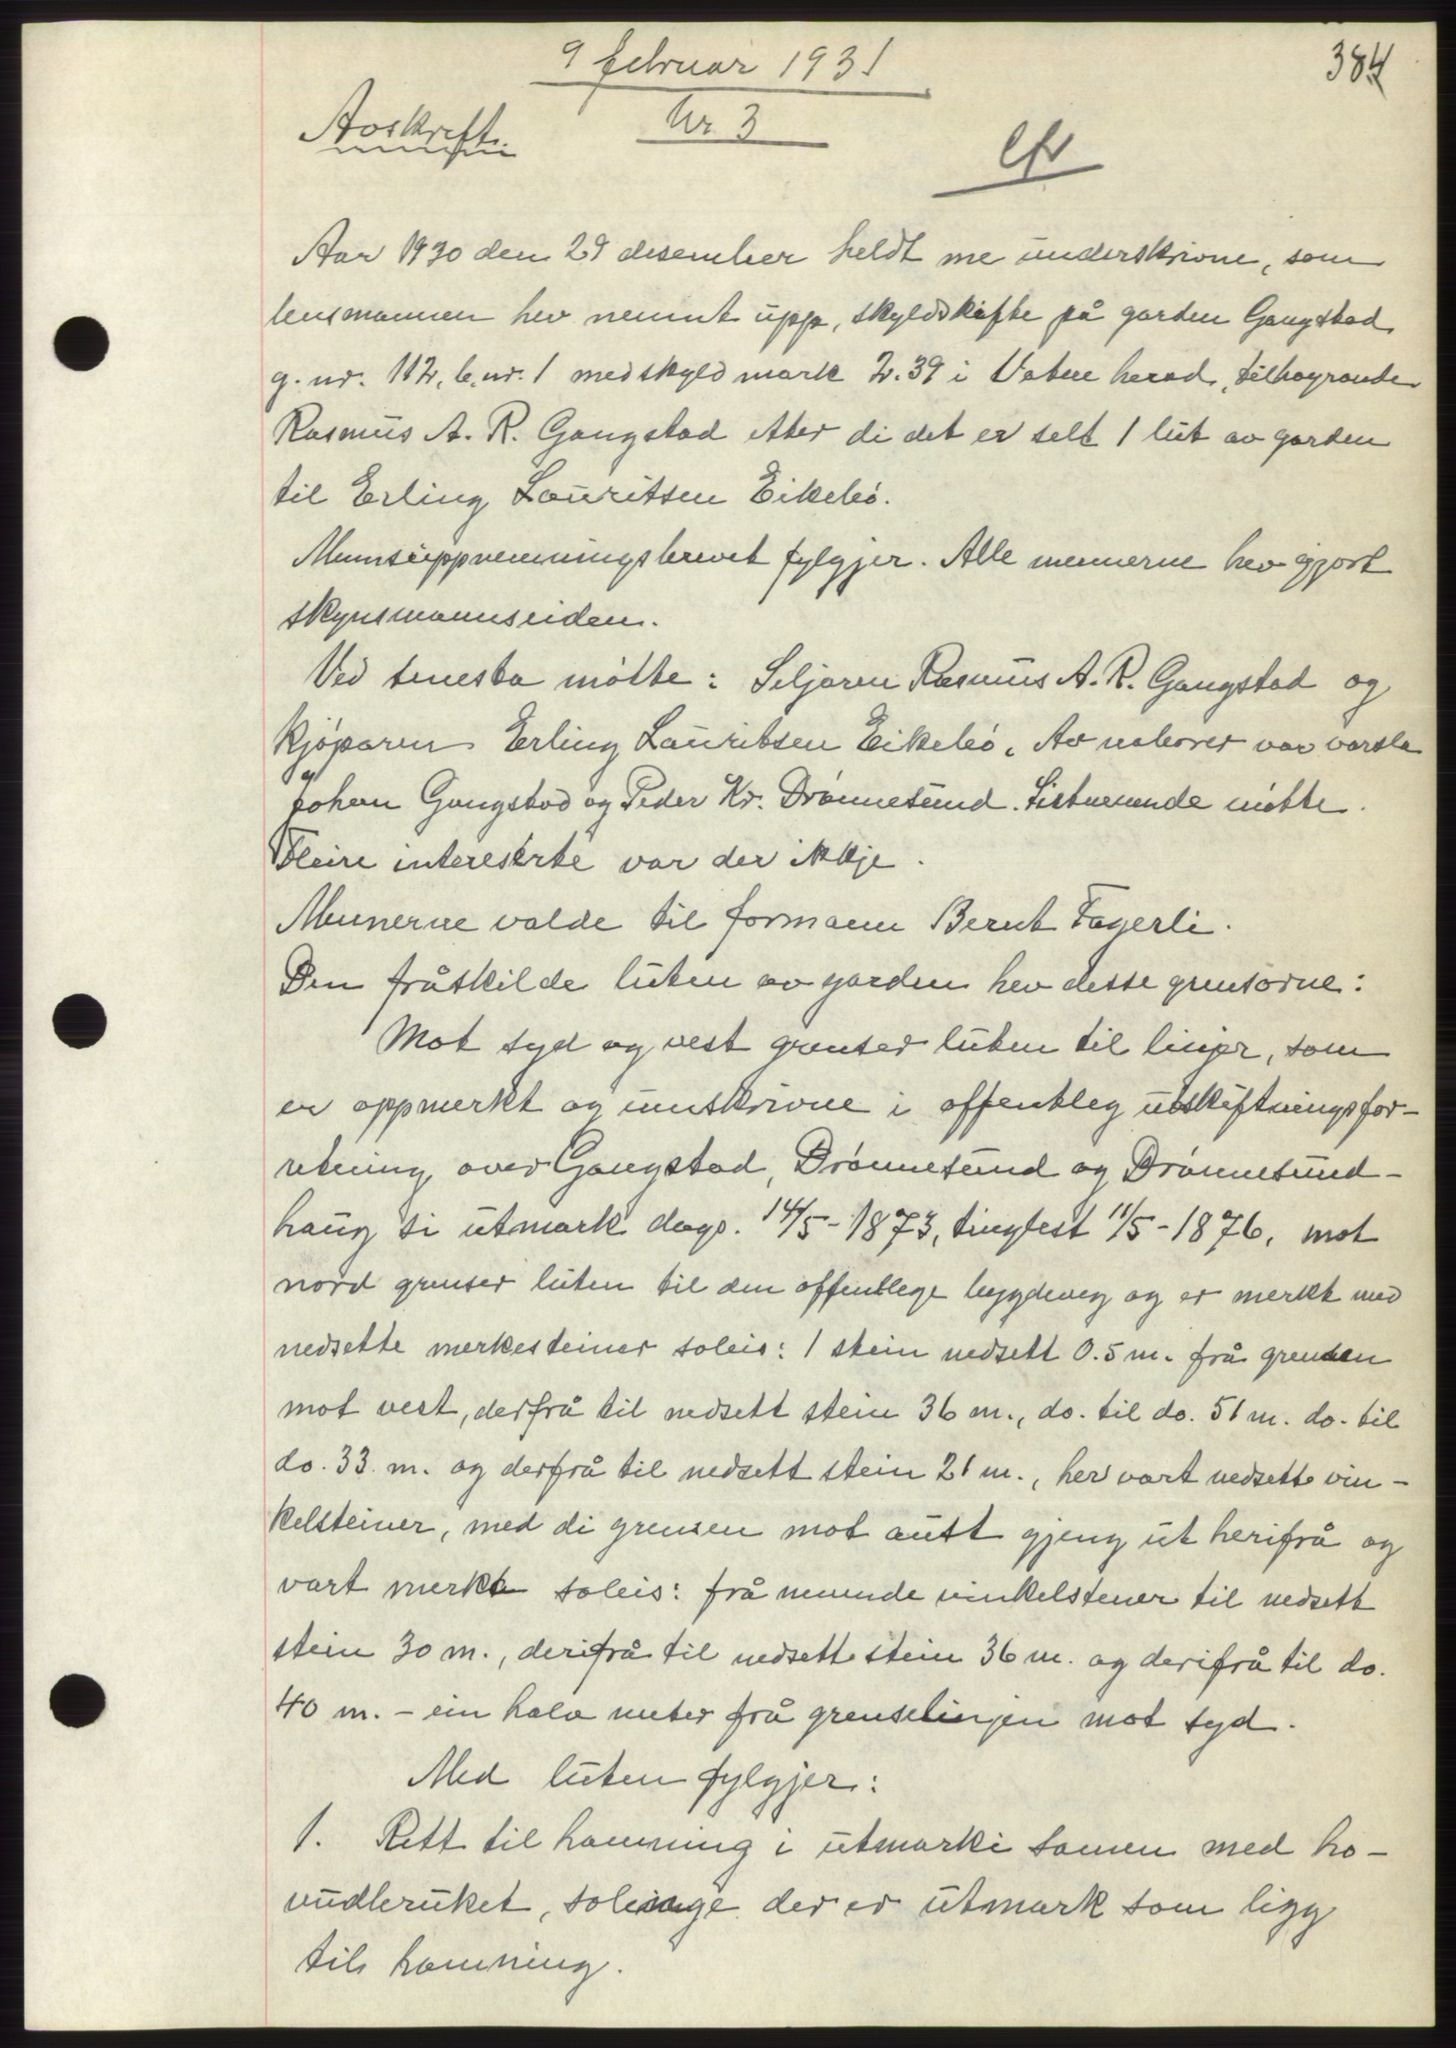 9 februar 1931
384
Nr 3
Avskrift.
Aar 1930 den 29 desember heldt me underskrivne, som
lensmannen hev nemnt upp, skyldskifte på garden Gangstad
g. nr. 112, b. nr. 1 med skyld mark 2.39 i Vatne herad, tilhøyrande
Rasmus A. R. Gangstad etter di det er selt 1 lut av garden
til Erling Lauritsen Eikebø.
Mennsuppnemningsbrevet fylgjer. Alle mennerne hev gjort
skynsmannseiden.
Ved tenesta møtte: Seljaren Rasmus A. R. Gangstad og
kjøparen Erling Lauritsen Eikebø. Av naboer var varsla
Johan Gangstad og Peder Kr. Drønnesund. Sistnemnde møtte.
Fleire intereserte var der ikkje.
Mennerne valde til formann Bernt Fagerli.
Den fråskilde luten av garden hev desse grensorne:
Mot syd og vest grenser luten til linjer, som
er oppmerkt og umskrivne i offentleg utskiftningsfor-
retning over Gangstad, Drønnesund og Drønnesund-
haug si utmark dags. 14/5-1873, tinglest 11/5-1876, mot
nord grenser luten til den offentlege bygdeveg og er merkt med
nedsette merkesteiner soleis: 1 stein nedsett 0.5 m. frå grensen
mot vest, derfrå til nedsett stein 36 m., do. til do. 51 m. do. til
do. 33. m. og derfrå til nedsett stein 21 m., her vart nedsett vin-
kelsteiner, med di grensen mot aust gjeng ut herifrå og
vart merkt soleis: frå nemnde vinkelstener til nedsett
stein 30 m., derifrå til nedsett stein 36 m. og derifrå til do.
40 m. - ein halv meter frå grenselinjen mot syd.
Med luten fylgjer:
1. Rett til hamning i utmarki saman med ho-
vudbruket, solenge der er utmark som ligg
til hamning.